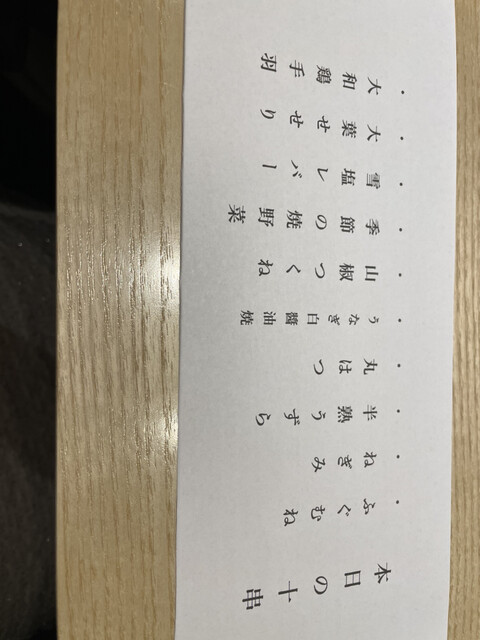 本日の十串
・ふぐむね
・ねぎみ
・半熟うずら
・丸はつ
・うなぎ白醬油焼
・山椒つくね
・季節の焼野菜
・雪塩レバー
・大葉せせり
・大和鶏手羽